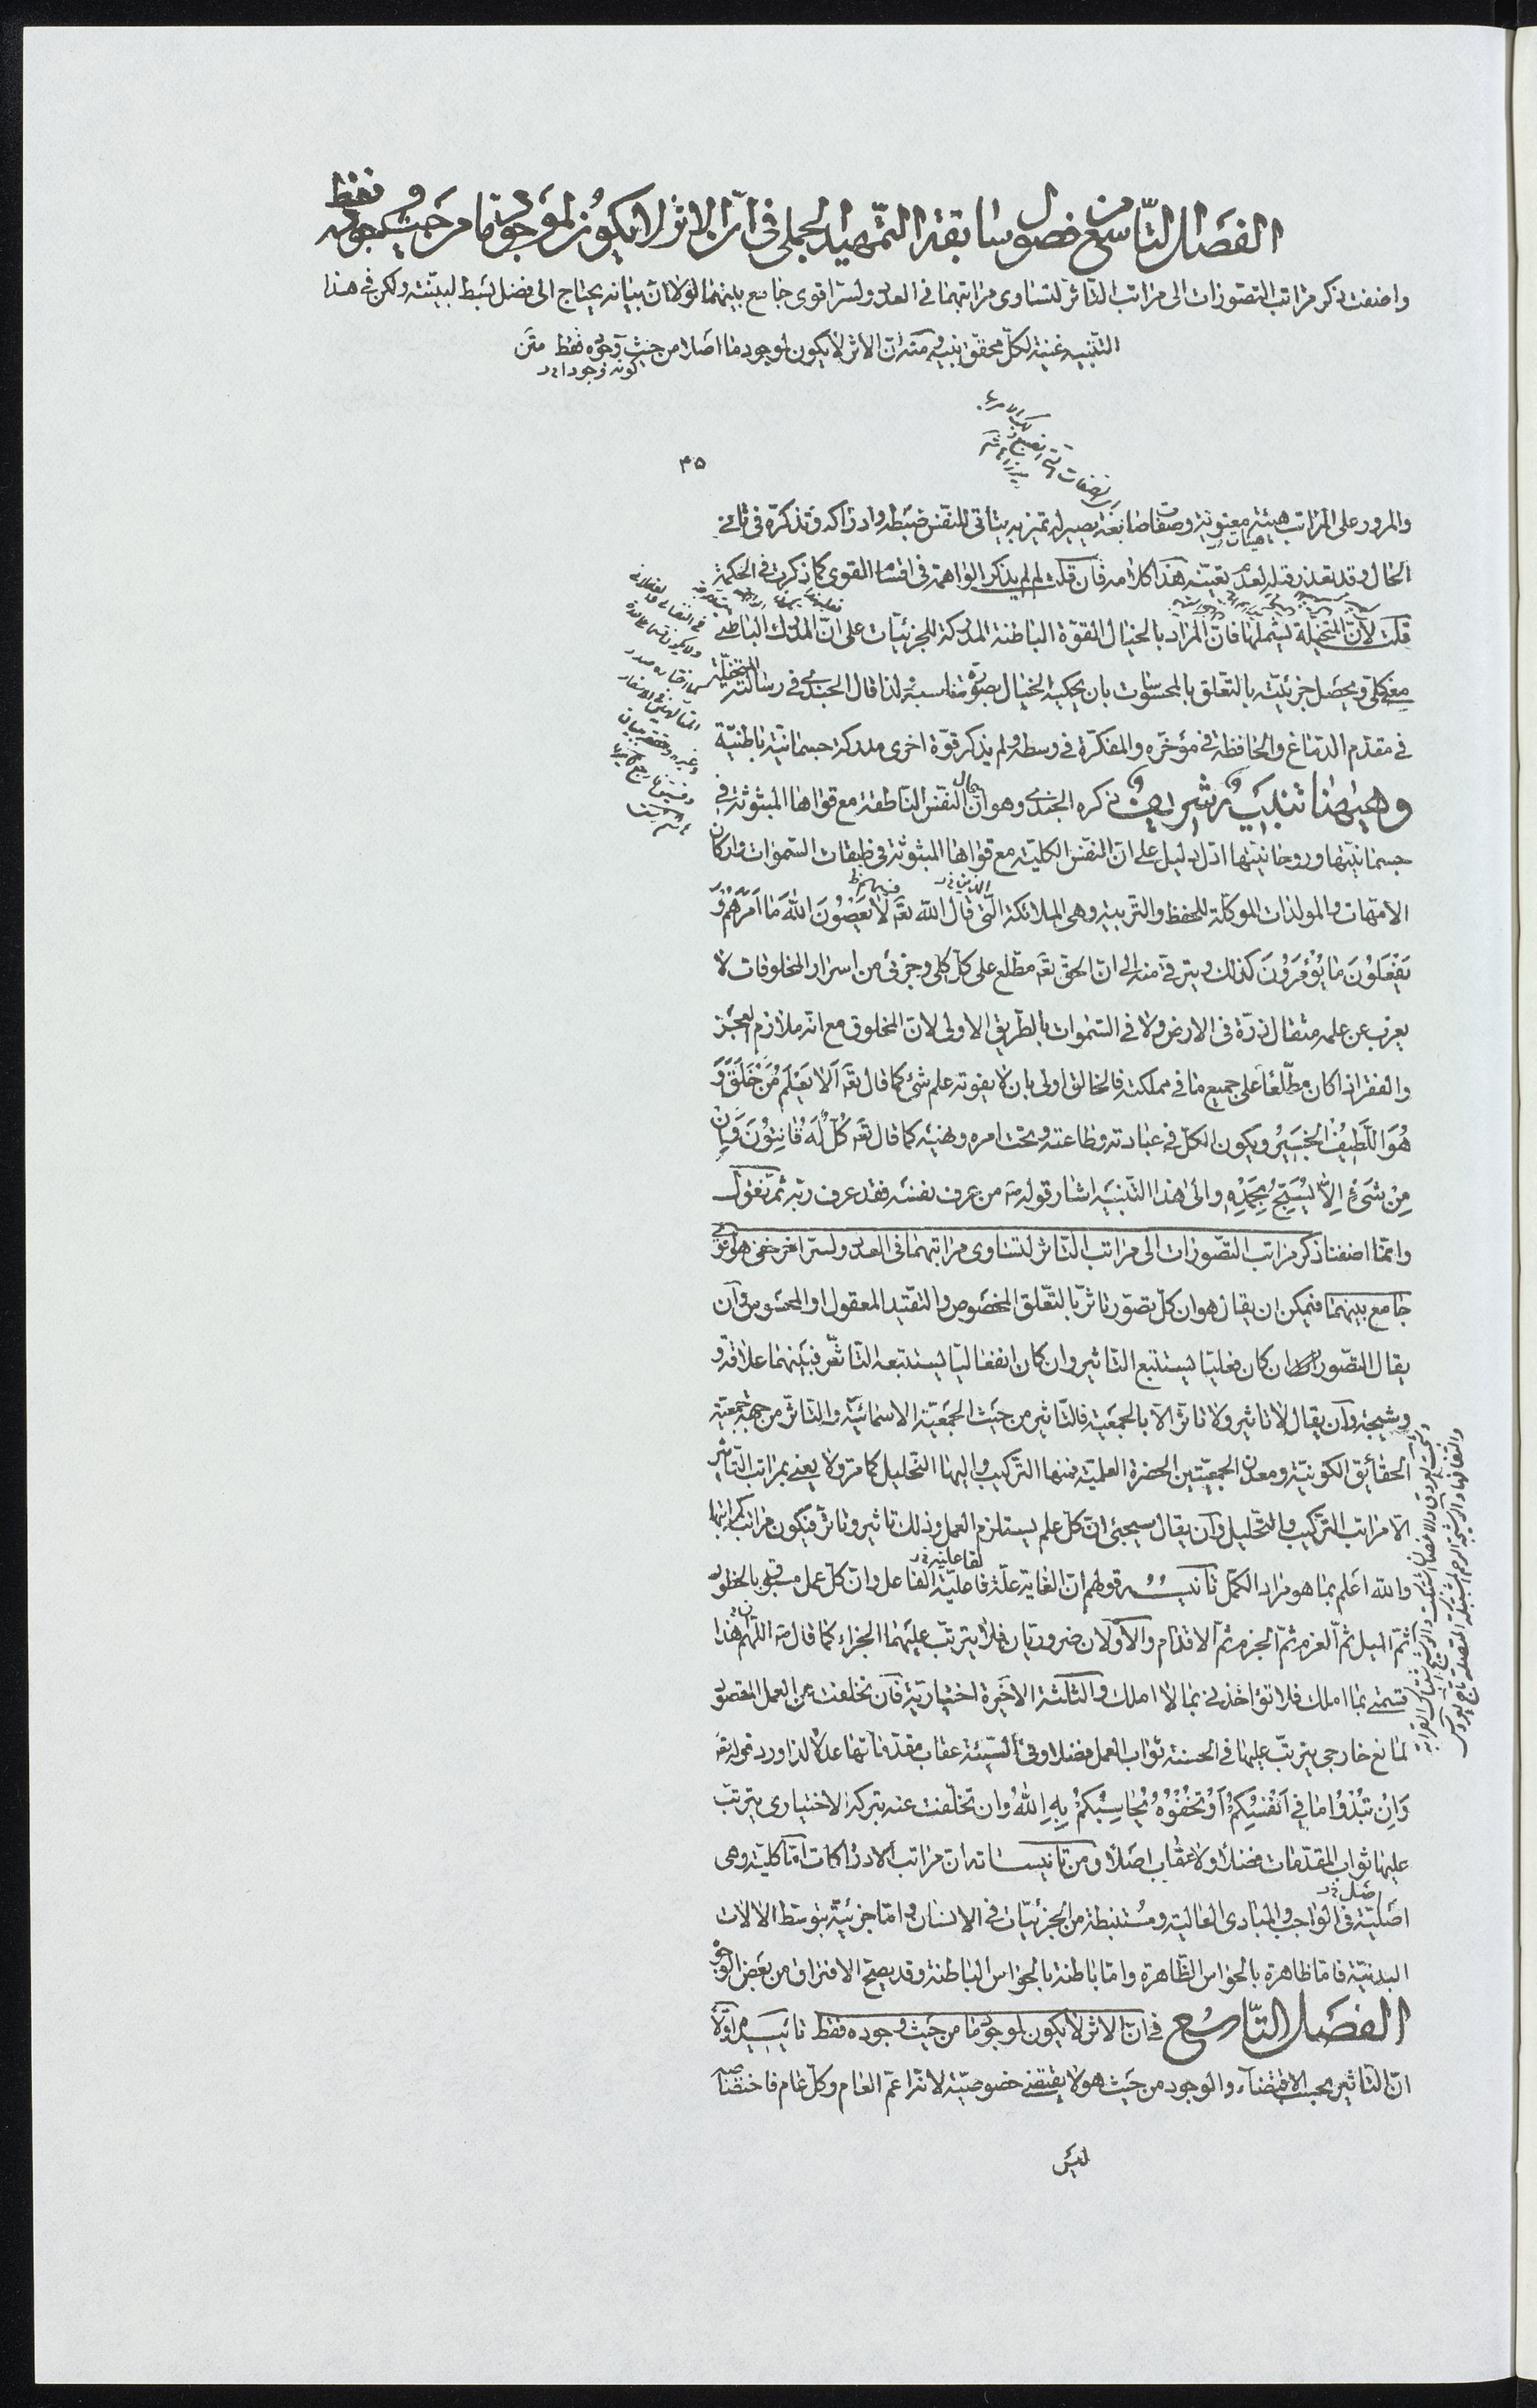 الفصل التّاسع من فصول سابقة التّمهيد الجملى فى انّ الاثر لا يكون لموجود ما من حيث وجوده فقط
واضفت ذكر مراتب التصوّرات الى مراتب التّأثر لتساوى مراتبهما فى العدد ولسرّ اقوى جامع بينهما لولا انّ بيانه يحتاج الى فضل بسط لبيّنته ولكن فى هذا
التّنبيه غنية لكلّ محقق نبيه متن انّ الاثر لا يكون لوجود ما اصلا من حيث وجوده فقط متن
كونه وجودا خ ر
۴۵
والمرور على المراتب هيئة معنوية وصفات صابغة يصير له تميز به يتأتى للنفس ضبطه وادراكه وتذكره فى ثانى
هيئات
الحال وقد تعذر قبله لعدم تعيّنه هذا كلامه فان قلت لم لم يذكر الواهمة فى اقسام القوى كما ذكرت فى الحكمة
قلت لانّ المتخيلة يشملها فانّ المراد بالخيال القوّة الباطنة المدركة للجزئيات على انّ المدرك الباطنى
معنى كلى ويحصل جزئيته بالتعلق بالمحسوسات بان يحكيه الخيال بصورة مناسبة لذا قال الجندى فى رسالته المتخيّلة
فى مقدم الدماغ والحافظة فى مؤخّره والمفكرة فى وسطه ولم يذكر قوّة اخرى مدركة جسمانيّة باطنيّة
وهيهنا تنبيه شريف ذكره الجندى وهو انّ حال النفس الناطقة مع قواها المبثوثة فى
جسمانيتها وروحانيتها ادلّ دليل على انّ النفس الكلية مع قواها المبثوثة فى طبقات السموات واركان
الذين خ ر فيهم ظ
الامّهات والمولدات الموكّلة للحفظ والتربية وهى الملائكة الّتى قال الله تعه لا يَعْصُونَ اللهَ ما اَمَرَهُمْ وَ
يَفْعَلُونَ ما يُؤْمَرُونَ كذلك ويترقى منه الى انّ الحق تعه مطّلع على كلّ كلى وجزئى من اسرار المخلوقات لا
يعزب عن علمه مثقال ذرّة فى الارض ولا فى السّموات بالطريق الاولى لانّ المخلوق مع انه ملازم العجز
والفقر اذا كان مطّلعاً على جميع ما فى مملكته فالخالق اولى بان لا يفوته علم شئ كما قال تعه اَلا يَعْلَمُ مَنْ خَلَقَ وَ
هُوَ اللَّطِيفُ الخَبِيرُ ويكون الكلّ فى عبادته وطاعته وتحت امره ونهيه كما قال تعه كُلٌّ لَهُ قانِتُونَ وَاِنْ
مِنْ شَىْءٍ اِلاّ يُسَبِّحُ بِحَمْدِهِ والى هذا التنبيه اشار قوله صه من عرف نفسه فقد عرف ربه ثمّ نقول
وانّما اضفنا ذكر مراتب التصّورات الى مراتب التّأثر لتساوى مراتبهما فى العدد ولسرّ اخر خفى هو اقوى
جامع بينهما فيمكن ان يقال هو ان كلّ تصوّر تأثر بالتّعلق المخصوص والتقيّد المعقول او المحسوس وآن
يقال التصّور ان كان فعليّا يستتبع التأثير وان كان انفعاليّا يستتبعه التأثّر فبينهما علاقة و
وشيجة وآن يقال لا تأثير ولا تأثّر الاّ بالجمعية فالتّأثير من حيث الجمعيّة الاسمائيّة والتأثّر من جهة جمعية
الحقائق الكونيّة ومعدن الجمعيّتين الحضرة العلميّة فمنها التركيب واليها التحليل كما مرّ ولا يعنى بمراتب التأثير
الاّ مراتب التّركيب والتّحليل وآن يقال سيجئ انّ كلّ علم يستلزم العمل وذلك تأثير وتأثر فيكون مراتبه كمراتبها
لفاعلية خ ر
والله اعلم بما هو مراد الكمّل تأنيسه قولهم انّ الغاية علّة فاعليّة الفاعل وانّ كلّ عمل مسبوق بالخطور
ثمّ الميل ثمّ العزم ثمّ الجزم ثمّ الاقدام والاّولان ضروريان فلا يترتّب عليهما الجزاء كما قال صه اللّهم هذا
قسمتى بما املك فلا تؤاخذنى بما لا املك والثلثة الاخيرة اختياريّة فان تخلفت عن العمل المقصود
لمانع خارجى يترتّب عليها فى الحسنة ثواب العمل فضلا وفى السّيئة عقاب مقدّماتها عدلا لذا ورد قوله تعه
وَاِنْ تُبْدُوا ما فى اَنْفُسِكُمْ اَوْ تُخْفُوهُ يُحاسِبْكُمْ بِهِ اللهُ وان تخلّفت عنه بتركه الاختيارى يترتب
عليها ثواب المقدّمات فضلا ولا عقاب اصلا ومن تأنيساته انّ مراتب الادراكات امّا كليّة وهى
اصليّة فى الواجب والمبادى العالية ومستنبطة من الجزئيّات فى الانسان وامّا جزئيّة بتوسّط الالات
البدنيّة فامّا ظاهرة بالحواس الظّاهرة وامّا باطنة بالحواس الباطنة وقد يصحّ الافتراق من بعض الوجوه
الفصل التّاسع فى انّ الاثر لا يكون لموجود ما من حيث وجوده فقط تأنيسه اوّلا
انّ التّأثير بحسب الاقتضاء والوجود من حيث هو لا يقتضى خصوصيّة لانّه اعمّ العام وكلّ عام فاختصّاصه
ليس